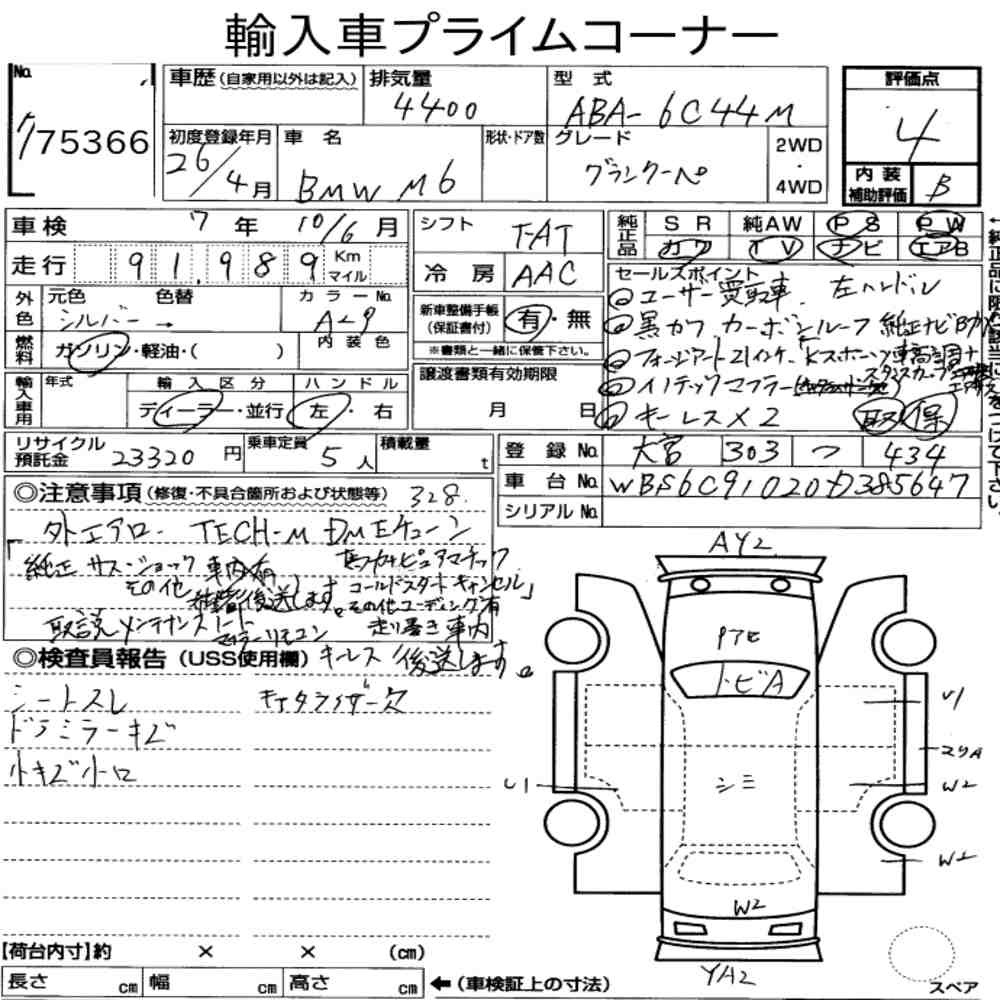 輸入車プライムコーナー
No.
775366
車歴(自家用以外は記入)
排気量
4400
型式
ABA-6C44M
評価点
4
初度登録年月
26/4月
車名
BMW M6
形状・ドア数
グレード
グランクーペ
2WD
・
4WD
内装
補助評価
B
車検
7年10/6月
シフト
7AT
純正品
SR 純AW PS PW
カワ TV ナビ エアB
走行
91,989
Km
マイル
冷房
AAC
セールスポイント
ユーザー買取車. 左ハンドル
黒カワ カーボンルーフ 純正ナビ
イノテックマフラー
キーレス×2
取 保
外色
元色 色替
シルバー→
カラーNo.
A29
新車整備手帳
(保証書付)
有・無
※書類と一緒に保管下さい。
燃料
ガソリン・軽油・( )
内装色
輸入車用
年式
輸入区分
ディーラー・並行
ハンドル
左・右
譲渡書類有効期限
月 日
リサイクル
預託金
23320円
乗車定員
5人
積載量
t
登録No.
大宮 303 つ 434
車台No.
WBS6C91020D385647
シリアルNo.
◎注意事項(修復・不具合箇所および状態等) 328.
外エアロ- TECH-M DMEチューン
「純正サス・ショック 車内有
その他
後送します。
コールドスタートキャンセル」
その他コーディング有
取説 メンテナンスノート
走り書き 車内
マフラーリモコン
◎検査員報告(USS使用欄) キーレス 後送します。
シートスレ
ドラミラーキズ
小キズ小凹
キャタライザー欠
AY2
Pアセ
トビA
シミ
U1
U1
スリA
W2
W2
W2
YA2
【荷台内寸】約 × × (cm)
長さ cm 幅 cm 高さ cm
←(車検証上の寸法)
スペア